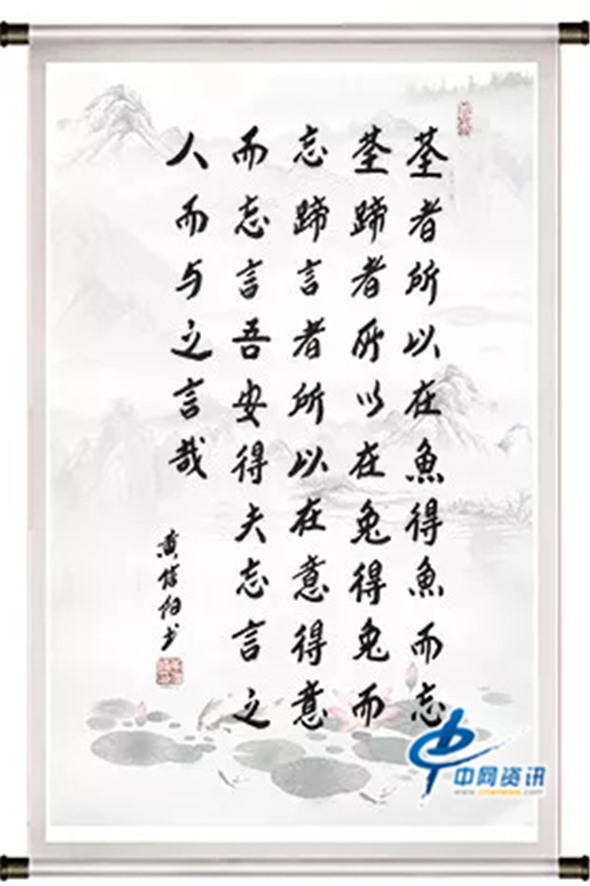 荃者所以在魚得魚而忘
荃蹄者所以在兔得兔而
忘蹄言者所以在意得意
而忘言吾安得夫忘言之
人而与之言哉
黄信阳书
中网资讯